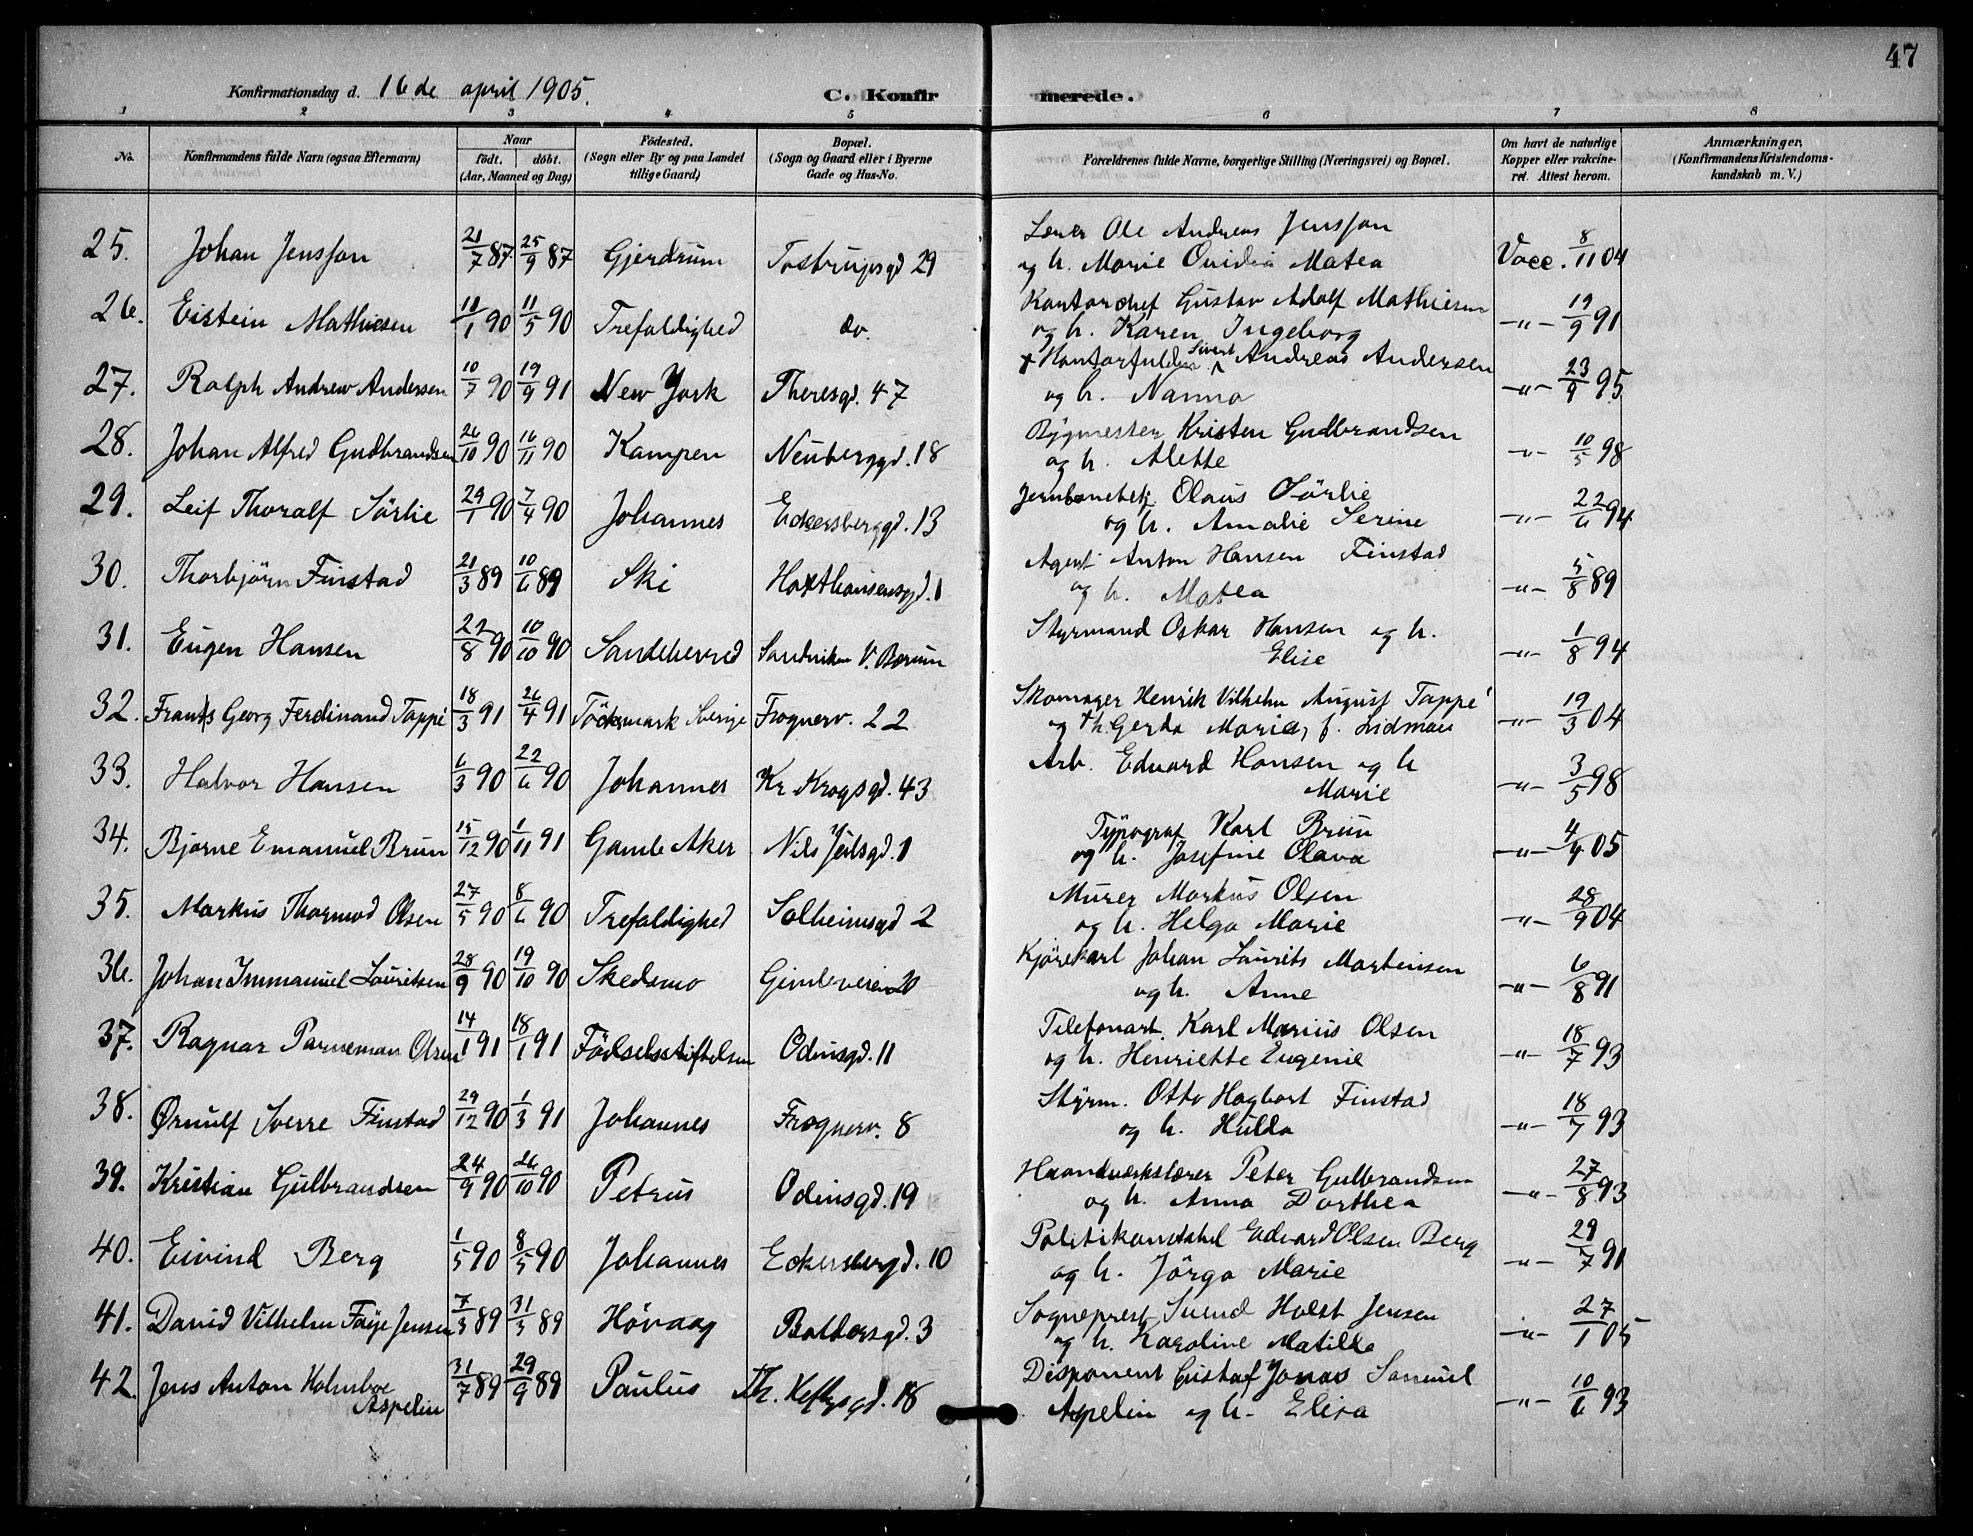 47
Konfirmationsdag d. 16 de april 1905.
C. Konfirmerede.
1 2 3 4 5 6 7 8
No. Konfirmandens fulde Navn (ogsaa Efternavn) Naar født. døbt. (Aar, Maaned og Dag) Fødested. (Sogn eller By og paa Landet tillige Gaard) Bopæl. (Sogn og Gaard eller i Byerne Gade og Hus-No. Forældrenes fulde Navne, borgerlige Stilling (Næringsvei) og Bopæl. Om havt de naturlige Kopper eller vakcineret. Attest herom. Anmærkninger, (Konfirmandens Kristendomskundskab m. V.)
25. Johan Jensson 21/7 87. 25/9 87 Gjerdrum Tostrupsgd 29 Ole Andreas Jensson
og h. Marie Ovidia Matea Vacc. 8/11 04
26. Eistein Mathiesen 11/1 90 11/5 90 Trefoldighed do. Kontorchef Gustav Adolf Mathiesen
og h. Karen Ingeborg -"- 19/9 91
27. Ralph Andrew Andersen 10/7 90 19/9 91 New York Theresgd. 47 Sivert Andreas Andersen
og h. Nanna -"- 23/9 95
28. Johan Alfred Gudbrandsen 26/10 90 16/11 90 Kampen Neuberggd. 18 Bygmester Kristen Gudbrandsen
og h. Alette -"- 10/5 98
29. Leif Thoralf Sörlie 29/1 90 7/4 90 Johannes Eckersberggd. 13 Jernbanebetj. Olaus Sörlie
og h. Amalie Serine -"- 22/6 94
30. Thorbjörn Finstad 21/3 89 10/6 89 Ski Haxthausensgd. 1 Agent Anton Hansen Finstad
og h. Matea -"- 5/8 89
31. Eugen Hansen 22/8 90 10/10 90 Sandeherred Sandviken V. Bærum Styrmand Oskar Hansen og h.
Elise -"- 1/8 94
32. Frants Georg Ferdinand Tappé 18/3 91 26/4 91 Töcksmark Sverige Frognerv. 22 Skomager Henrik Vilhelm August Tappé
og †h. Gerda Maria, f. Lidman -"- 19/3 04
33. Halvor Hansen 6/3 90 22/6 90 Johannes Kr Krogsgd. 43 Arb. Edvard Hansen og h
Marie -"- 3/5 98
34. Bjarne Emanuel Brun 15/12 90 1/11 91 Gamle Aker Nils Juelsgd. 1 Typograf Karl Brun
og h. Josefine Olava -"- 4/4 05
35. Markus Thormod Olsen 27/5 90 8/6 90 Trefoldighed Solheimsgd 2 Murer Markus Olsen
og h. Helga Marie -"- 28/9 04
36. Johan Immanuel Lauritsen 28/9 90 19/10 90 Skedsmo Gimleveien 20 Kjörekarl Johan Laurits Martinsen
og h. Anne -"- 6/8 91
37. Ragnar Parneman Olsen 14/1 91 18/1 91 Födselsstiftelsen Odinsgd. 11 Telefonarb. Karl Marius Olsen
og h. Henriette Eugenie -"- 18/7 93
38. Ørnulf Sverre Finstad 29/12 90 1/3 91 Johannes Frognerv. 8 Styrm. Otto Hagbart Finstad
og h. Hulda -"- 18/7 93
39. Kristian Gulbrandsen 24/9 90 26/10 90 Petrus Odinsgd. 19 Haandverkslærer Peter Gulbrandsen
og h. Anna Dorthea -"- 27/8 93
40. Eivind Berg 1/5 90 8/5 90 Johannes Eckersbergd. 10 Politikonstabel Edvard Olsen Berg
og h. Jörga Marie -"- 29/7 91
41. David Vilhelm Faye Jensen 7/3 89 31/3 89 Hövaag Baldersgd. 3 Sogneprest Svend Holst Jensen
og h. Karoline Matilde -"- 27/1 05
42. Jens Anton Holmboe
Aspelin 31/7 89 29/9 89 Paulus Th. Heftysgd. 18 Disponent Gustaf Jonas Samuel
Aspelin og h. Elisa -"- 10/6 93